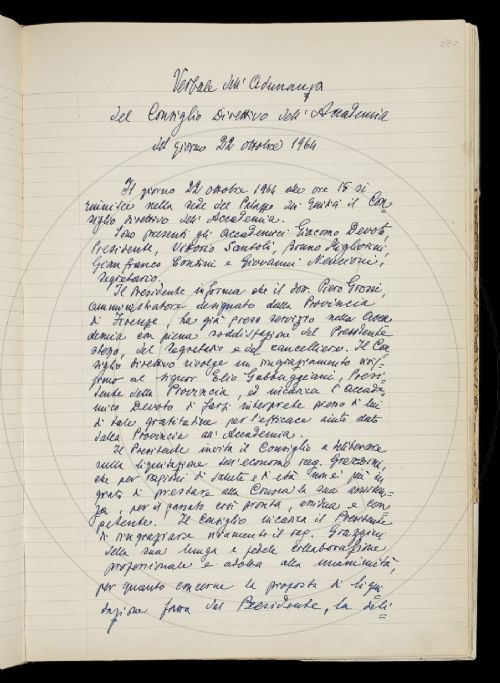 Verbale dell'Adunanza
del Consiglio Direttivo dell'Accademia
del giorno 22 ottobre 1964
Il giorno 22 ottobre 1964 alle ore 15 si
riunisce nella sede del Palazzo dei Giudici il Con=
siglio direttivo dell'Accademia.
Sono presenti gli Accademici Giacomo Devoto,
Presidente, Vittorio Santoli, Bruno Migliorini,
Gianfranco Contini e Giovanni Nencioni,
segretario.
Il Presidente informa che il dott. Piero Grossi,
amministratore designato dalla Provincia
di Firenze, ha già preso servizio nella Acca=
demia con piena soddisfazione del Presidente
stesso, del Segretario e del cancelliere. Il Con=
siglio direttivo rivolge un ringraziamento vivis=
simo al signor Elio Gabbuggiani, Presi=
dente della Provincia, ed incarica l'Accade=
mico Devoto di farsi interprete presso di lui
di tale gratitudine per l'efficace aiuto dato
dalla Provincia all'Accademia.
Il Presidente invita il Consiglio a deliberare
sulla liquidazione dell'economo rag. Grazzini,
che per ragioni di salute e di età non è più in
grado di prestare alla Crusca la sua assisten=
za, per il passato così pronta, assidua e com=
petente. Il Consiglio incarica il Presidente
di ringraziare vivamente il rag. Grazzini
della sua lunga e fedele collaborazione
professionale e adotta alla unanimità,
per quanto concerne la proposta di liqui=
dazione fatta dal Presidente, la deli=